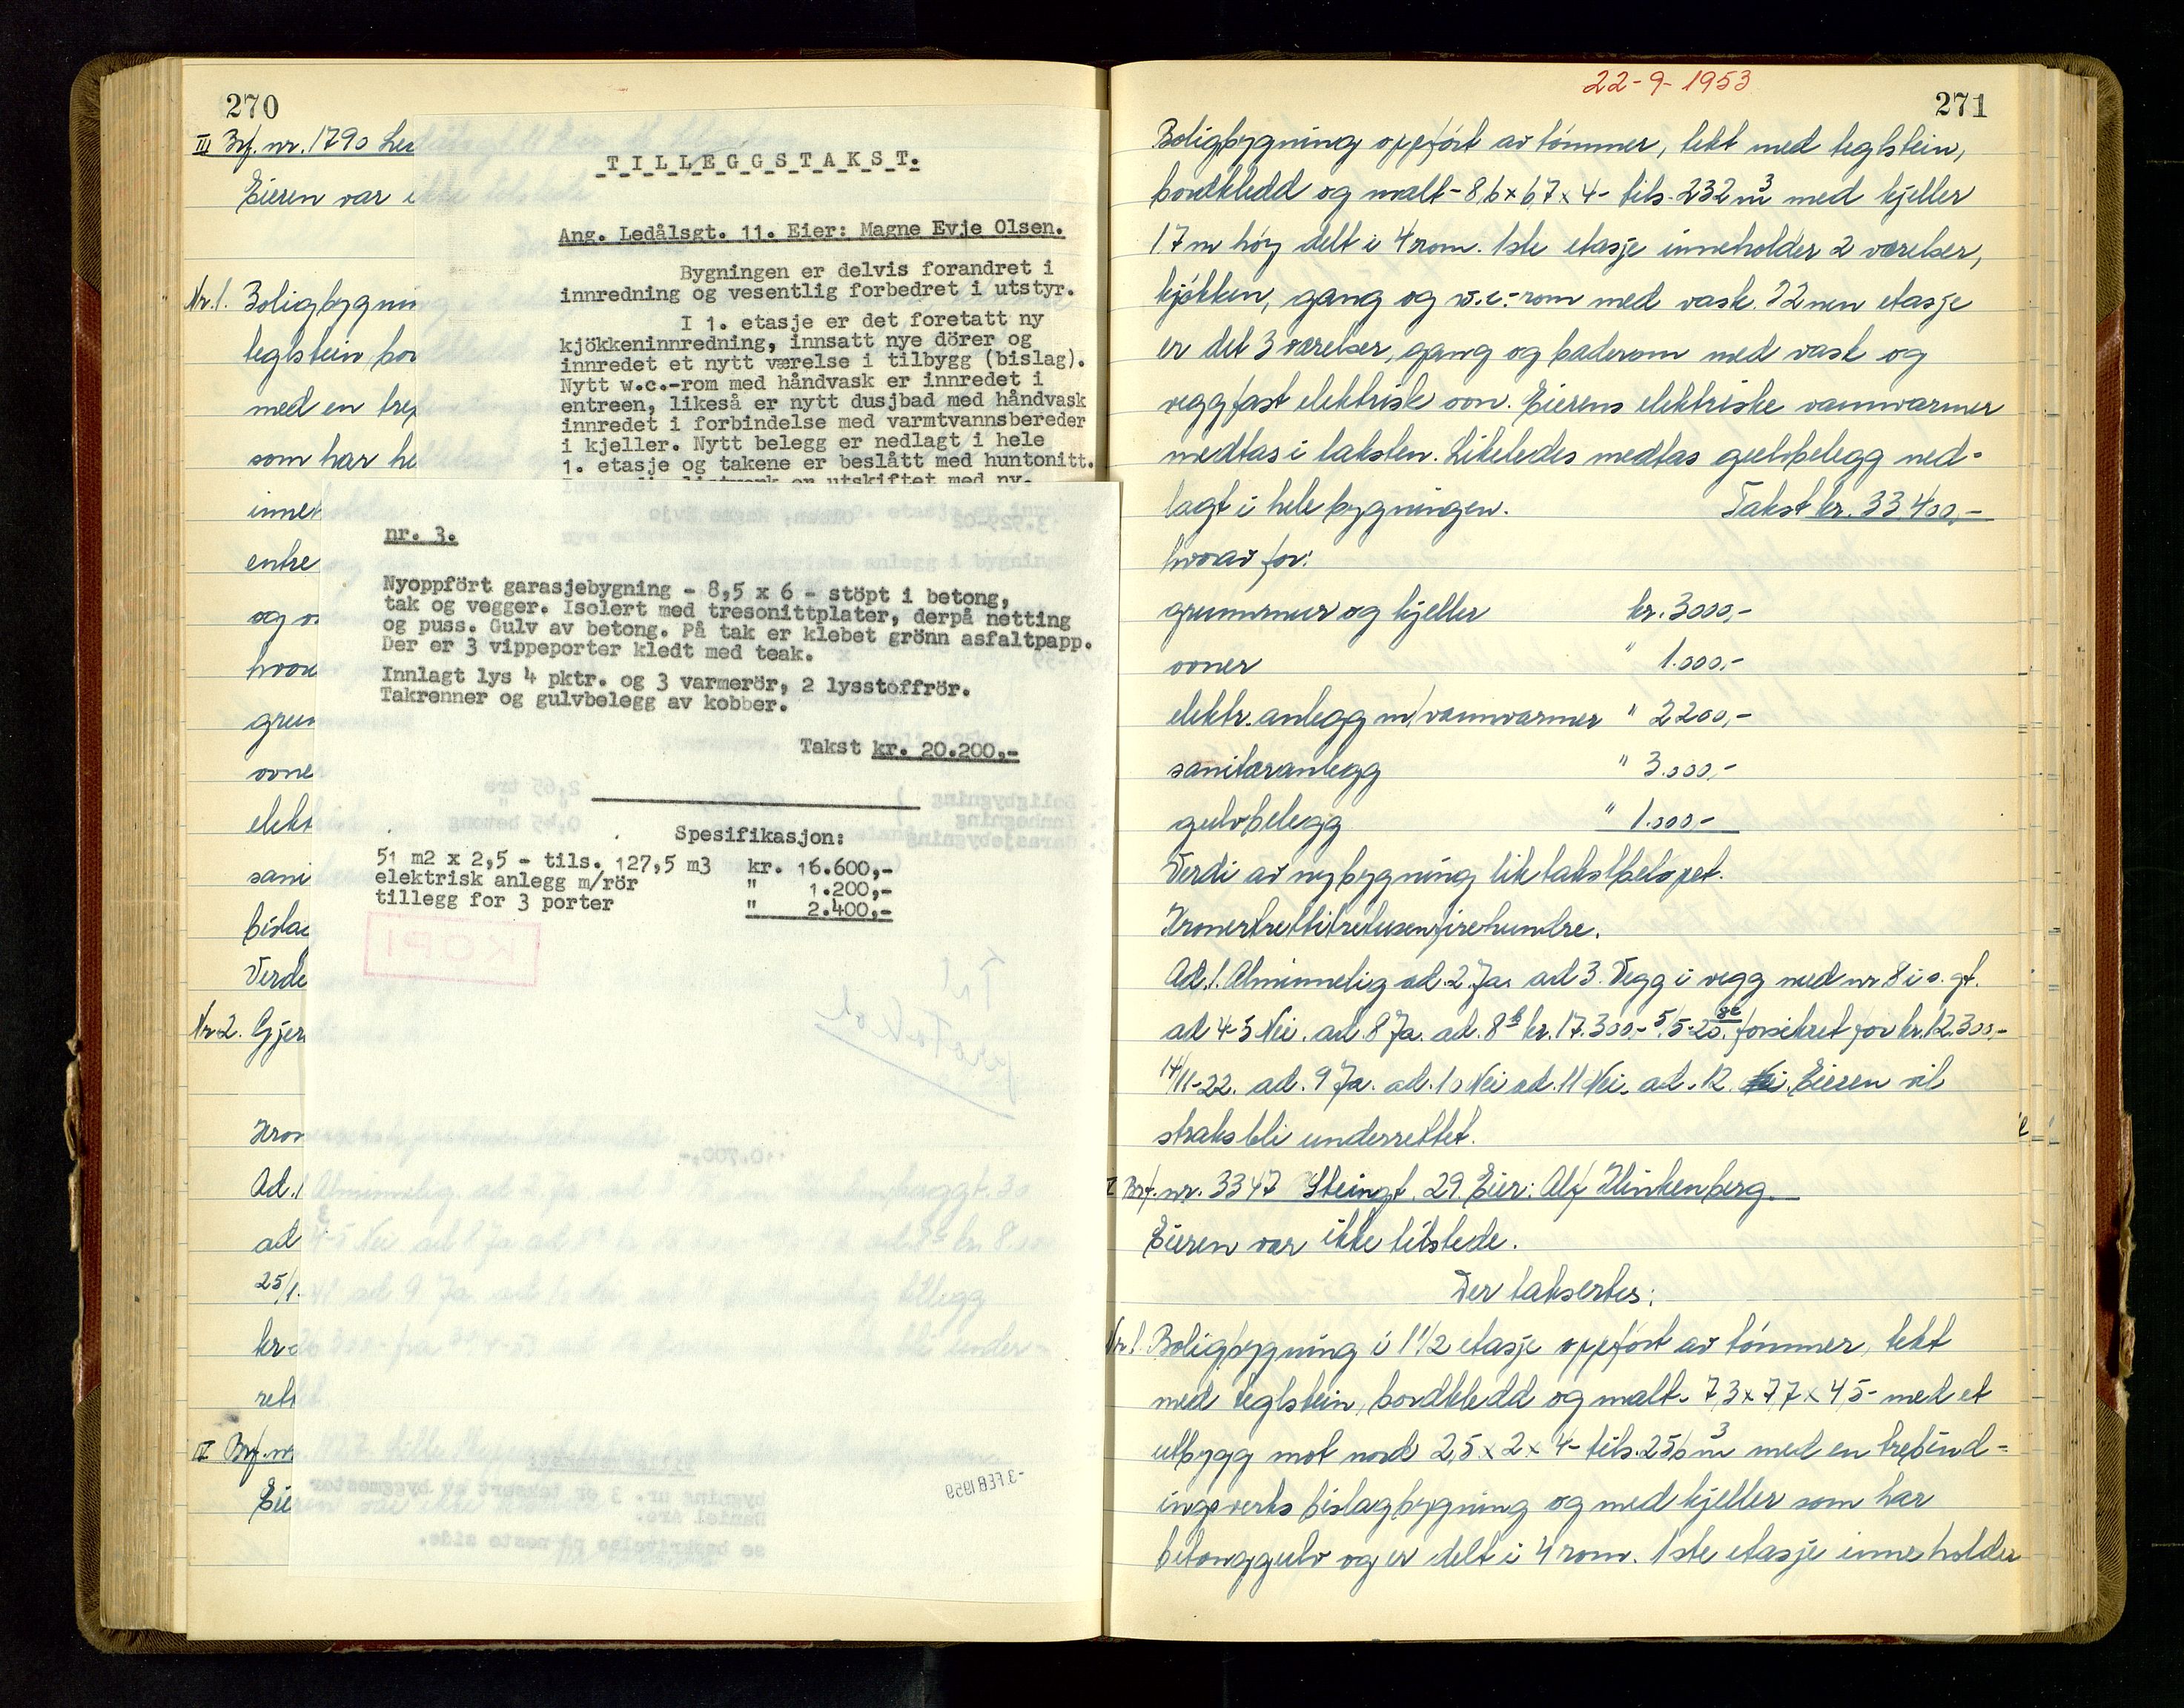 270
III Brf. nr. 1790 Led
Eieren var i
Nr. 1. Boligbygnin
teglstein bor
med en trep
som har he
inneh
entre
og o
hvor
grun
ovne
elekt
sani
bislag
Verdi
Nr. 2. Gjer
Kron
Ad. 1
ad
25/1.
kr
rett
IV Brf. nr
Eie
T_I_L_L_E_G_G_S_T_A_K_S_T.
Ang. Ledålsgt. 11. Eier: Magne Evje Olsen.
Bygningen er delvis forandret i
innredning og vesentlig forbedret i utstyr.
I 1. etasje er det foretatt ny
kjökkeninnredning, innsatt nye dörer og
innredet et nytt værelse i tilbygg (bislag).
Nytt w.c.-rom med håndvask er innredet i
entreen, likeså er nytt dusjbad med håndvask
innredet i forbindelse med varmtvannsbereder
i kjeller. Nytt belegg er nedlagt i hele
1. etasje og takene er beslått med huntonitt.
er utskiftet med ny-
nr. 3.
Nyoppfört garasjebygning - 8,5 x 6 - stöpt i betong,
tak og vegger. Isolert med tresonittplater, derpå netting
og puss. Gulv av betong. På tak er klebet grönn asfaltpapp.
Der er 3 vippeporter kledt med teak.
Innlagt lys 4 pktr. og 3 varmerör, 2 lysstoffrör.
Takrenner og gulvbelegg av kobber.
Takst kr. 20.200,-
Spesifikasjon:
51 m2 x 2,5 - tils. 127,5 m3 kr. 16.600,-
elektrisk anlegg m/rör " 1.200,-
tillegg for 3 porter " 2.400,-
KOPI
-3 FEB 1959
22-9-1953
271
Boligbygning oppfört av tömmer, tekt med teglstein,
bordkledd og malt - 8,6 x 6,7 x 4 - tils. 232 m3 med kjeller
1.7 m höy delt i 4 rom. 1ste etasje inneholder 2 værelser,
kjökken, gang og w.c.-rom med vask. I 2nen etasje
er det 3 værelser, gang og baderom med vask og
veggfast elektrisk ovn. Eierens elektriske vannvarmer
medtas i taksten. Likeledes medtas gulvbelegg ned-
lagt i hele bygningen. Takst kr. 33.400,-
hvorav for:
grunnmur og kjeller kr. 3000,-
ovner " 1.000,-
elektr. anlegg m/vannvarmer " 2200,-
sanitæranlegg " 3.000,-
gulvbelegg " 1.000,-
Verdi av nybygning lik takstbelöpet.
Kronertrettitretusenfirehundre.
Ad. 1. Alminnelig ad. 2. Ja. ad 3. Vegg i vegg med nr 8 i s. gt.
ad 4-5 Nei. ad. 8 Ja. ad. 8 b kr. 17.300,- 5/5-20. forsikret for kr. 12.300,-
14/11-22. ad. 9 Ja. ad. 10 Nei ad. 11 Nei. ad. 12. Eieren vil
straks bli underrettet.
V Brf. nr. 3347 Steingt. 29. Eier: Alf Klinkenberg.
Eieren var ikke tilstede.
Der taksertes:
Nr. 1. Boligbygning i 1 1/2 etasje oppfört av tömmer, tekt
med teglstein, bordkledd og malt - 7,3 x 7,7 x 4,5 - med et
utbygg mot nord 2,5 x 2 x 4 - tils. 256 m3 med en trebind-
ingsverks bislagbygning og med kjeller som har
betonggulv og er delt i 4 rom. 1ste etasje inneholder